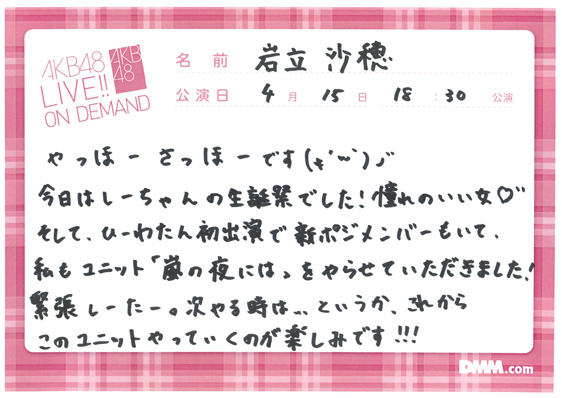 AKB48
LIVE!!
ON DEMAND
AKB
48
名前 岩立 沙穂
公演日 4月 15日 18:30 公演
やっほー さっほーです(*´`)♪
今日はしーちゃんの生誕祭でした!憧れのいい女♡
そして、ひーわたん初出演で新ポジメンバーもいて、
私もユニット「嵐の夜には」をやらせていただきました!
緊張しーたー。次やる時は...というか、これから
このユニットやっていくのが楽しみです!!!
DMM.com